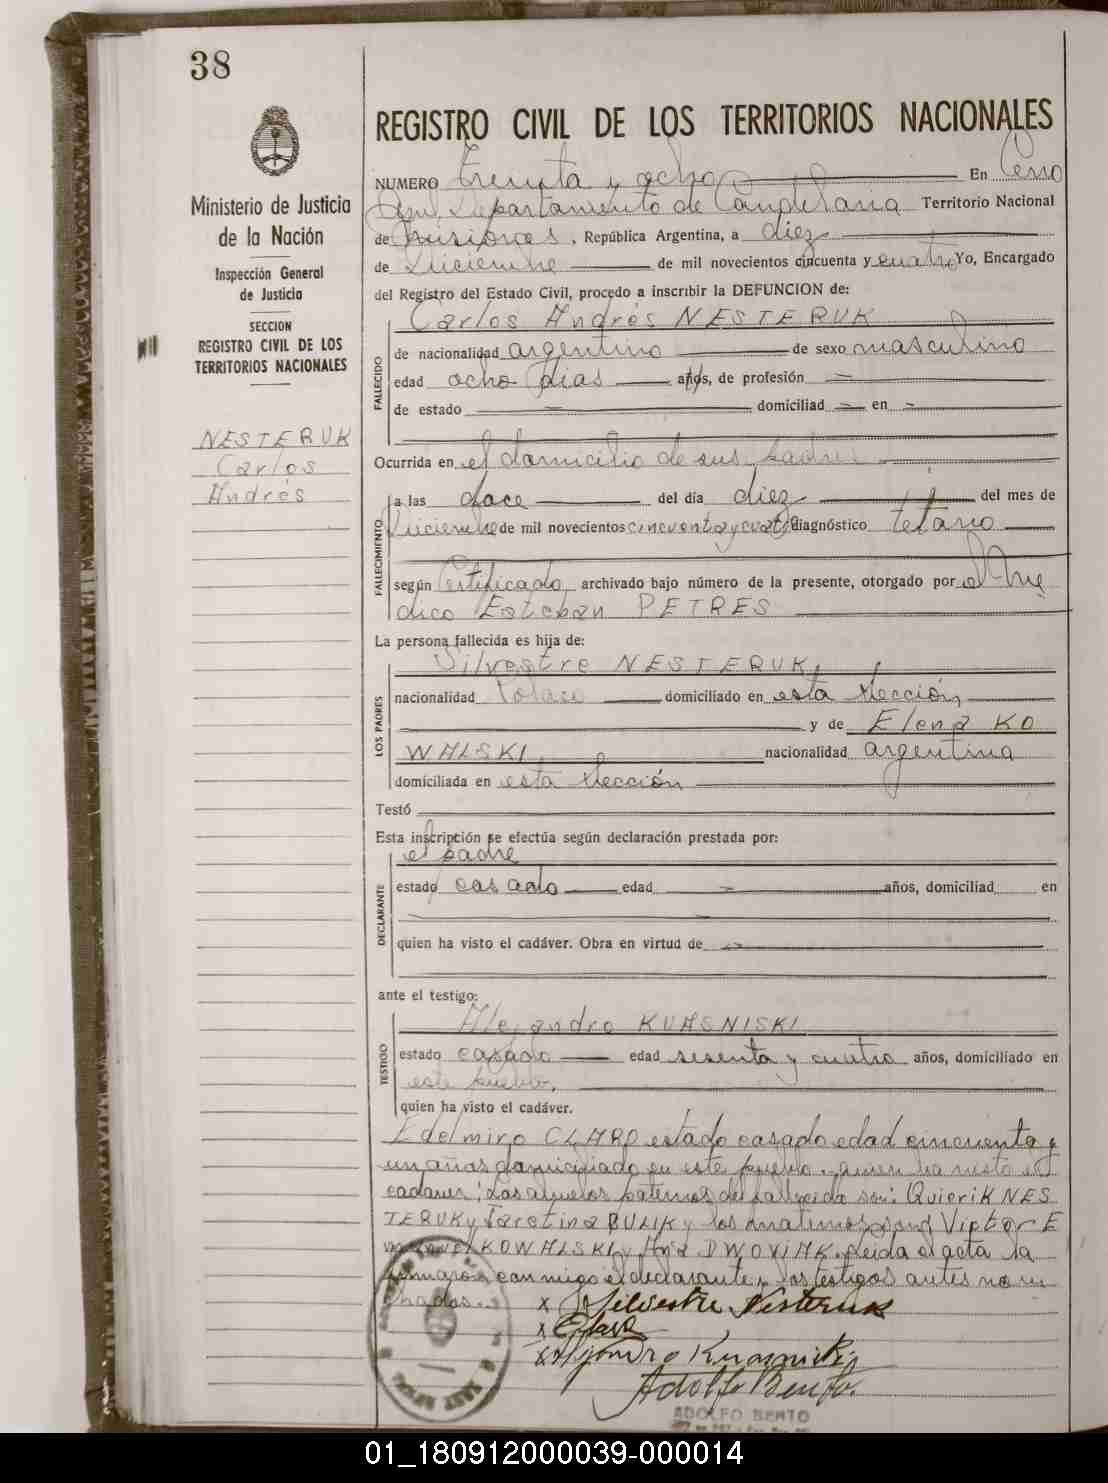 38
REGISTRO CIVIL DE LOS TERRITORIOS NACIONALES
Ministerio de Justicia
de la Nación
Inspección General
de Justicia
SECCION
REGISTRO CIVIL DE LOS
TERRITORIOS NACIONALES
NESTERUK
Carlos
Andrés
NUMERO Treinta y ocho En Cerro
Departamento de Candelaria Territorio Nacional
de Misiones, República Argentina, a diez
de Diciembre de mil novecientos cincuenta y cuatro Yo, Encargado
del Registro del Estado Civil, procedo a inscribir la DEFUNCION de:
Carlos Andrés NESTERUK
FALLECIDO
de nacionalidad argentino de sexo masculino
edad ocho dias años, de profesión —
de estado — domiciliad — en —
Ocurrida en el domicilio de sus padres
FALLECIMIENTO
a las doce del día diez del mes de
Diciembre de mil novecientos cincuenta y cuatro diagnóstico tetano
según Certificado archivado bajo número de la presente, otorgado por el Mé
dico Esteban PETRES
La persona fallecida es hija de:
LOS PADRES
Silvestre NESTERUK,
nacionalidad Polaco domiciliado en esta Sección,
y de Elena KO
WALSKI, nacionalidad argentina
domiciliada en esta Sección
Testó
Esta inscripción se efectúa según declaración prestada por:
DECLARANTE
el padre
estado casado edad — años, domiciliad en
quien ha visto el cadáver. Obra en virtud de —
ante el testigo:
TESTIGO
Alejandro KUASNISKI
estado casado edad sesenta y cuatro años, domiciliado en
este pueblo,
quien ha visto el cadáver.
Edelmiro CLARO estado casado edad cincuenta y
un años domiciliado en este pueblo, quien ha visto el
cadaver; Los abuelos paternos del fallecido son: QuieriK NES
TERUK y Taretina BULIK y los maternos son Victor E
KOWALSKI y Ana DWONIAK. Leida el acta la
firmaron conmigo el declarante y los testigos antes nom
brados.
x Silvestre Nesteruk
x Claro
x Alejandro Kuasniski
Adolfo Bento
ADOLFO BENTO
01_180912000039-000014